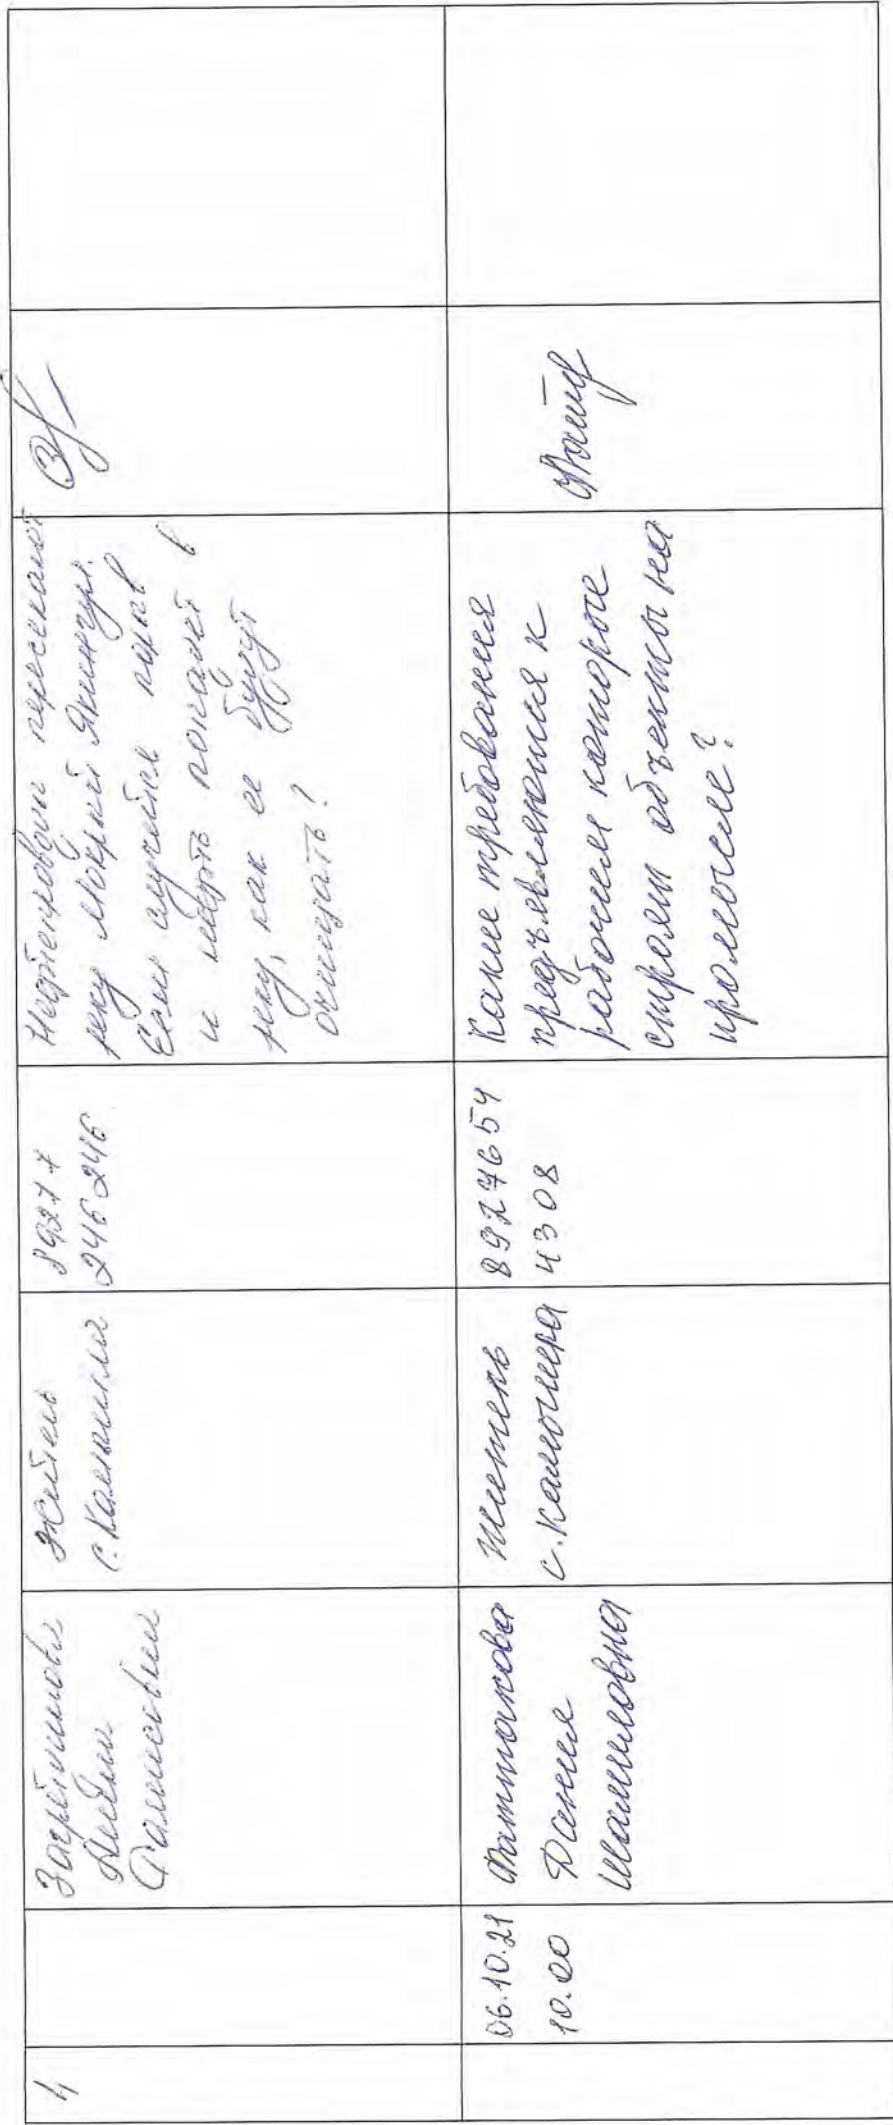 4
Житель
с. Калмыкла
8927 7
246 246
Нефтепровод пересекает
реку Мокрый
Если случится порыв
и нефть попадет в
реку, как ее будут
очищать?
06.10.21
10.00
Фаттахова
Дания
Шамиловна
житель
с. Камышла
8927654
4308
Какие требования
предъявляются к
рабочим которые
строят объекты на
промысле?